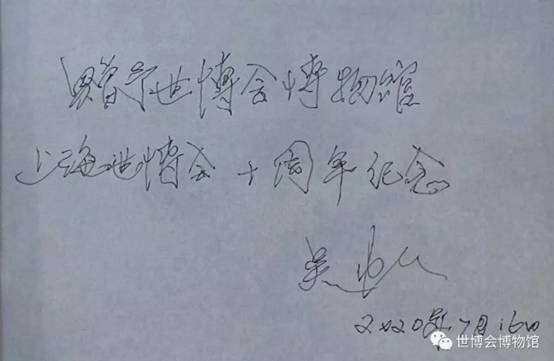 赠予世博会博物馆
上海世博会十周年纪念
吴
2020年7月16日
世博会博物馆